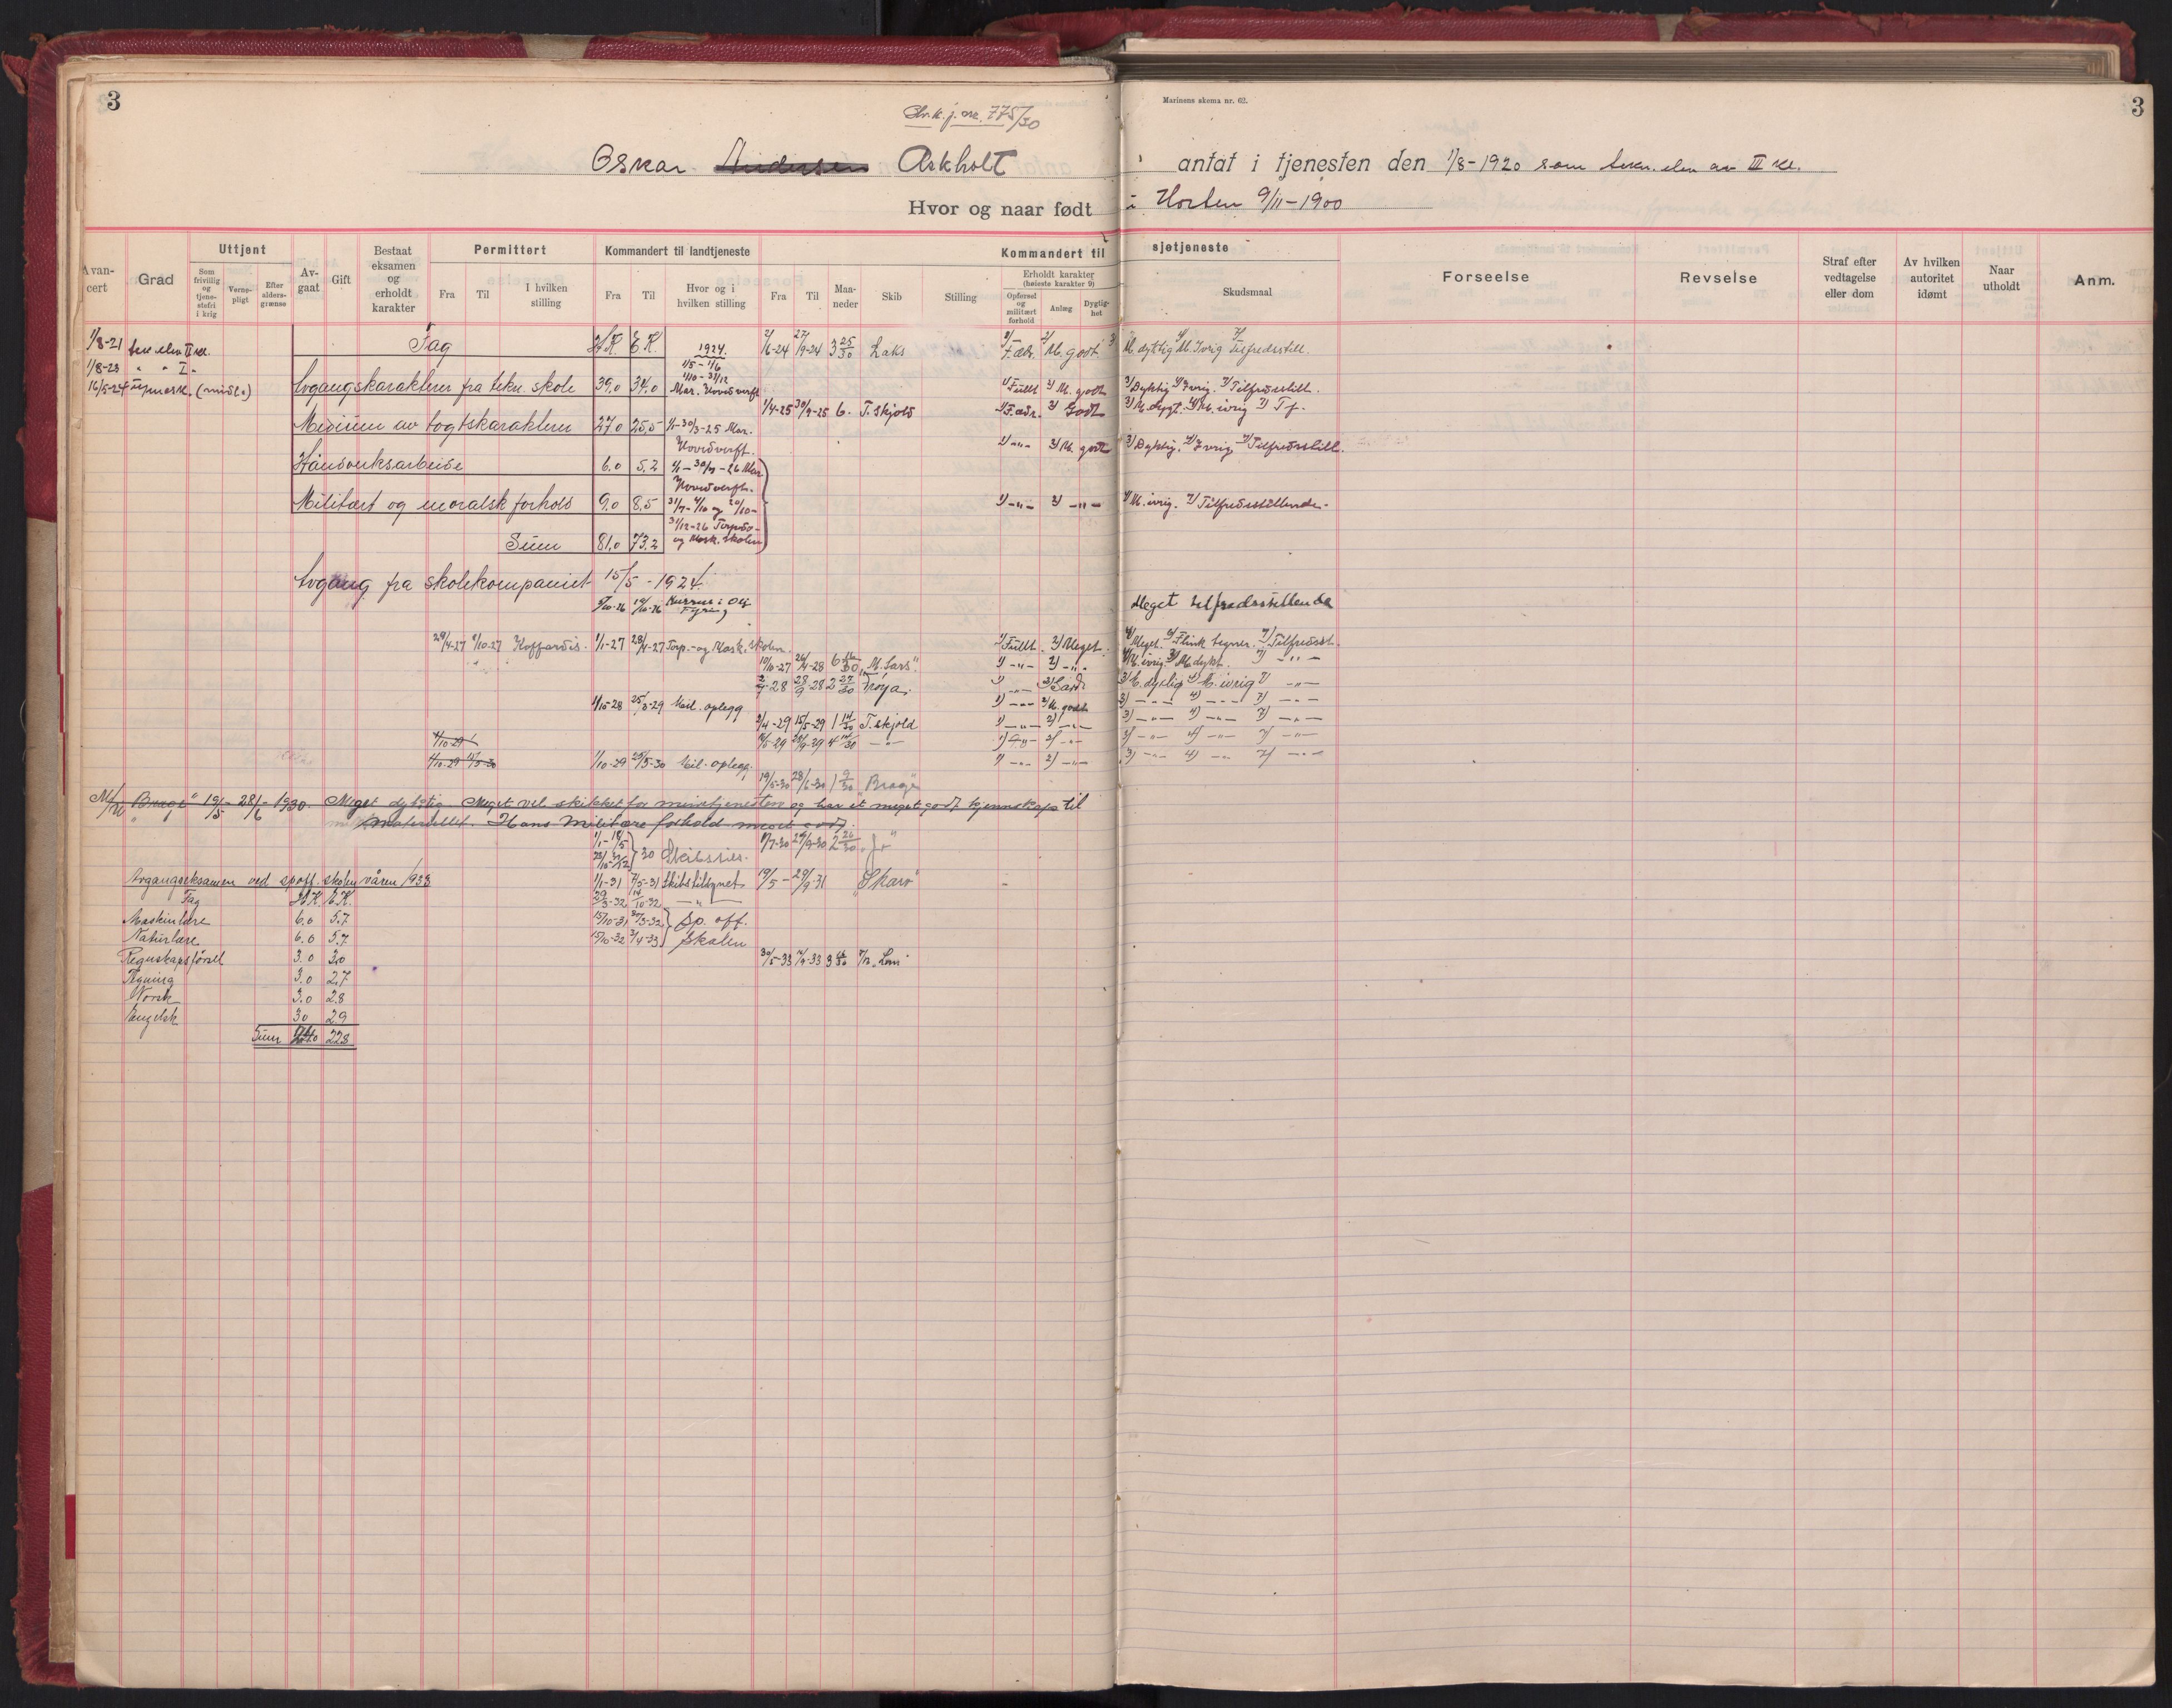 3
j. nr. 775/30
Marinens skema nr. 62.
3
Oskar Andersen Askholt
antat i tjenesten den 1/8-1920 som tekn. elev av III kl.
Hvor og naar født
i Horten 9/11-1900
Avancert
Grad
Uttjent
Som frivillig og tjenestefri i krig
Vernepligt
Efter aldersgrænse
Avgaat
Gift
Bestaat eksamen og erholdt karakter
Permittert
Fra
Til
I hvilken stilling
Kommandert til landtjeneste
Fra
Til
Hvor og i hvilken stilling
Kommandert til
sjøtjeneste
Fra
Til
Maaneder
Skib
Stilling
Erholdt karakter (høieste karakter 9)
Opførsel og militært forhold
Anlæg
Dygtighet
Skudsmaal
Forseelse
Revselse
Straf efter vedtagelse eller dom
Av hvilken autoritet idømt
Naar utholdt
Anm.
1/8-21 tekn. elev II kl.
1/8-23 " " I "
16/5-24 (midl.)
Fag H.K. E.K.
Avgangskarakterer fra tekn. skole 39,0 34,0
Medium av togtskarakterer 27,0 25,5
Håndverksarbeide 6,0 5,2
Militært og moralsk forhold 9,0 8,5
Sum 81,0 73,2
1924.
1/5 - 1/6
1/10 - 31/12
Mar. Hovedverft
1/1-30/3-25 Mar.
Hovedverft.
1/1-30/7-26 Mar.
Hovedverft.
31/7-4/10 og 20/10-
31/12-26 Torpedo-
og Mask. skolen
2/6-24 27/9-24 3 25/30 Laks
M. godt
M. dyktig M. Ivrig Tilfredsstill.
1/ Fullt 2/ M. godt
3/ Dyktig 4/ Ivrig. 7/ Tilfredsstill.
1/4-25 30/9-25 6. T. skjold
2/ Godt
3/ M. dygt. 4/ M. ivrig 7/ T f.
1/ -"- 2/ M. godt
3/ Dyktig. 4/ Ivrig 7/ Tilfredsstill.
1/ -"- 2/ -"-
4/ M. ivrig. 7/ Tilfredsstillende.
Avgang fra skolekompaniet 15/5 - 1924.
5/10-26 19/10-26 Kursus i Olj
Fyring
Meget tilfredsstillende
29/4-27 9/10-27 Koffardis.
1/1-27 28/4-27 Torp.- og Mask. skolen.
1/ Fullt. 2/ Meget.
4/ Meget. Flink tegner. 7/ Tilfredsst.
10/10-27 26/4-28 6 16/30 "M. Sars"
1/ -"- 2/ -"-
4/ M. ivrig. 3/ M. dykt. 7/ -"-
2/7-28 28/9-28 2 27/30 Frøya.
3/ M. dyktig 4/ M. ivrig 7/ -"-
1/10-28 25/3-29 Mil. oplegg
2/ M. godt
3/ -"- 4/ -"- 7/ -"-
2/4-29 15/5-29 1 14/30 T. skjold
3/ -"- 4/ -"- 7/ -"-
28/9-29 4 -"-
3/ -"- 4/ -"- 7/ -"-
1/10-29
1/10-29
1/10-29 25/5-30 Mil. oplegg.
3/ -"- 4/ -"- 7/ -"-
19/5-30 28/6-30 1 9/30 "Brage"
M/m "Brage" 19/5 - 28/6 - 1930. Meget dyktig. Meget vel skikket for minetjenesten og har et meget godt kjennskap til
materiellet. Hans Militære forhold meget godt.
30 Skibstils.
24/9-30 2 26/30
Avgangseksamen ved spoff. skolen våren 1933
1/1-31 7/5-31 Skibstilsynet
19/5 - 29/9 31 "Skarv"
Fag H.K. E.K.
Maskinlære 6.0 5.7
Naturlære 6.0 5.7
Regnskapsførsel 3.0 3.0
Tegning 3.0 2.7
Norsk 3.0 2.8
Engelsk 3.0 2.9
Sum 24.0 22.8
29/3-32 14/10-32 -"-
15/10-31 30/3-32 Sp. off.
15/10-32 3/4-33 skolen
30/5-33 14/9-33 "Lom"